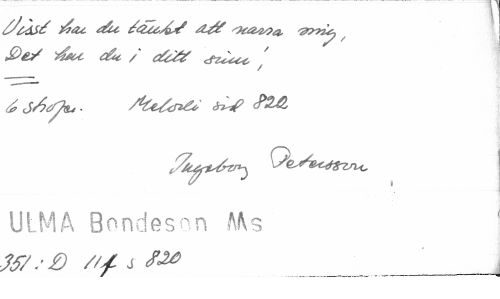 Visst har du tänkt att narra mig,
Det har du i ditt sinn',
6 strofer. Melodi sid 820
Ingeborg Petersson
ULMA Bondeson Ms
351:D 11f s 820